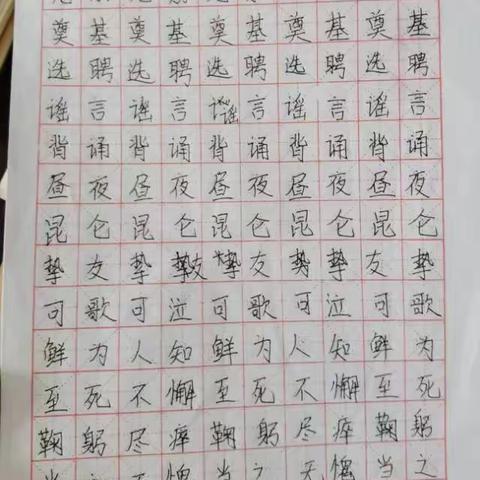 奠基奠基奠基奠基奠基
选聘选聘选聘选聘选聘
谣言谣言谣言谣言谣言
背诵背诵背诵背诵背诵
昼夜昼夜昼夜昼夜昼夜
昆仑昆仑昆仑昆仑昆仑
挚友挚挚友挚友势挚友挚
可歌可泣可歌可泣可歌
鲜为人知鲜为人知鲜为
至死不懈至死不懈至死
鞠躬尽瘁鞠躬尽瘁鞠躬
当之无愧当之无愧当之